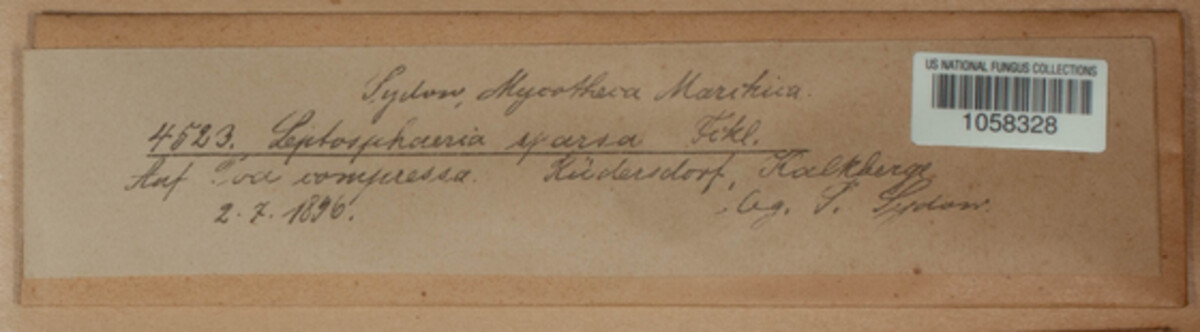 Sydow, Mycotheca Marchica.
4523. Leptosphaeria sparsa Fckl.
Auf Poa compressa. Rüdersdorf, Kalkberge
2. 7. 1896. lg. P. Sydow.
US NATIONAL FUNGUS COLLECTIONS
1058328